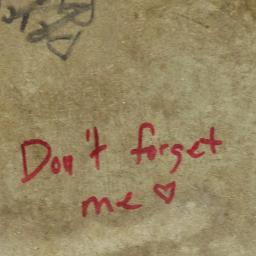 Don't forget
me ♡